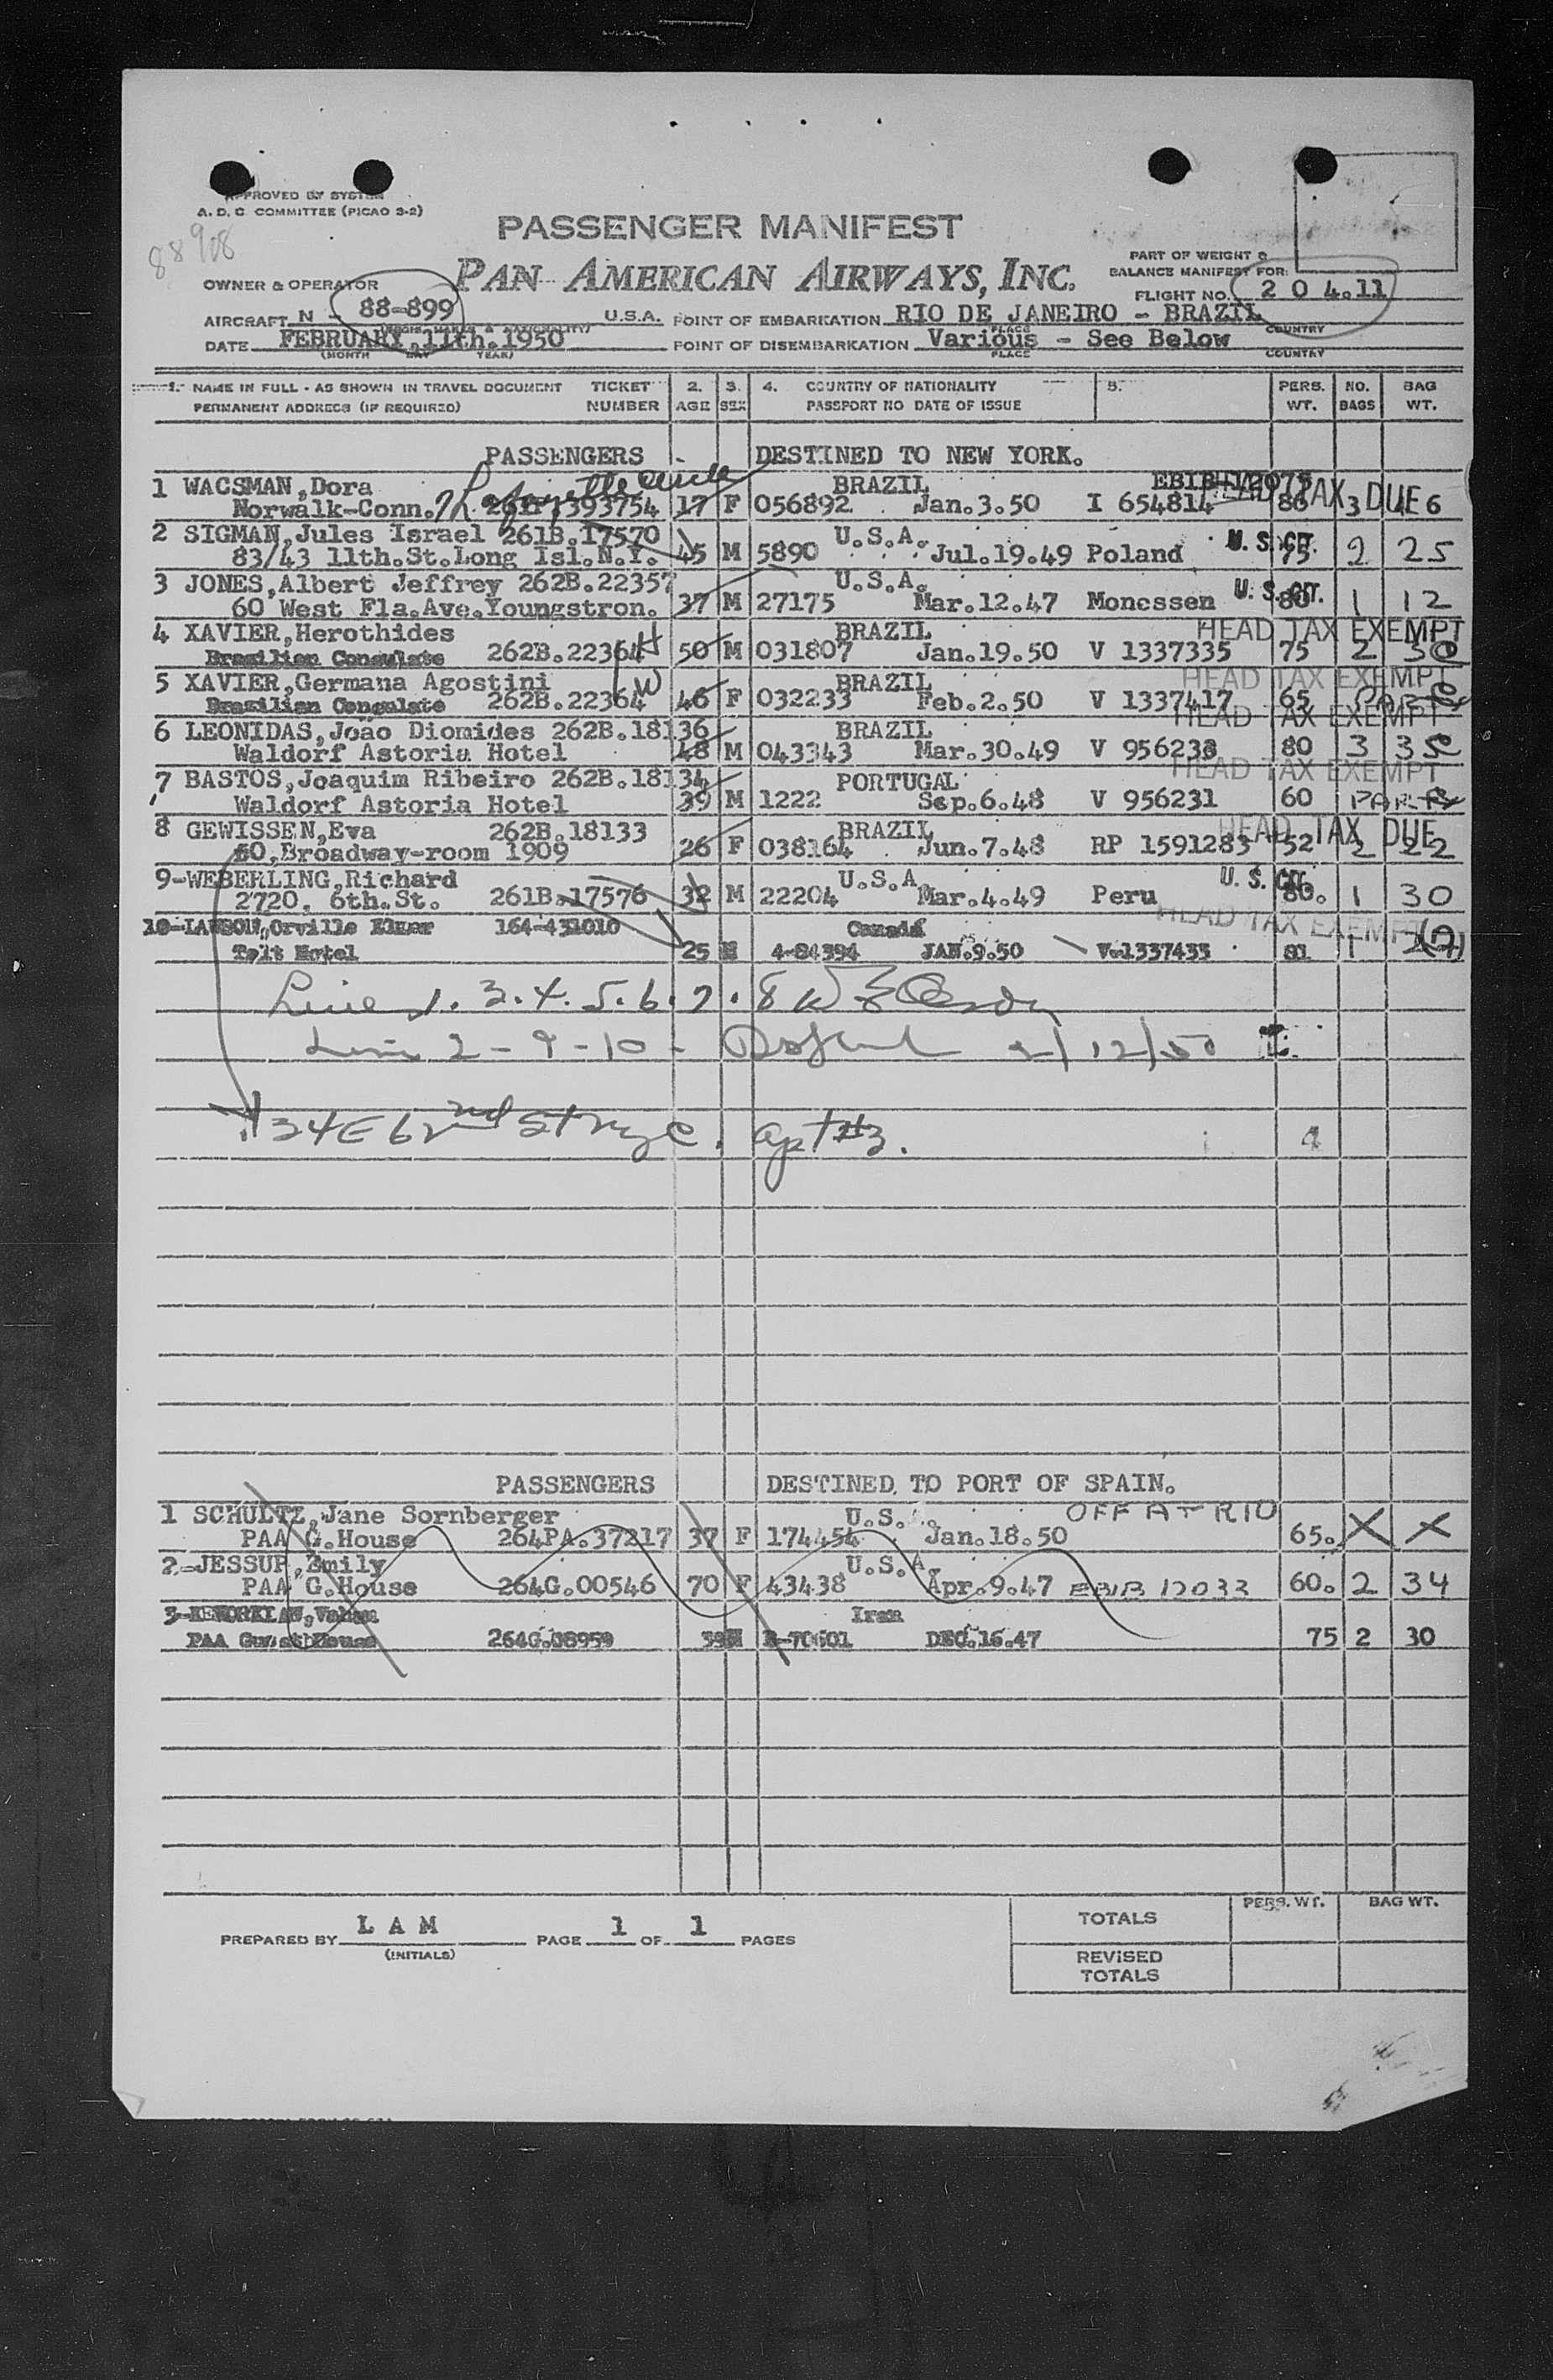 APPROVED BY SYSTEM
A. D. C. COMMITTEE (PICAO 3-2)
88908
PASSENGER MANIFEST
PART OF WEIGHT &
BALANCE MANIFEST FOR:
OWNER & OPERATOR
PAN AMERICAN AIRWAYS, INC.
FLIGHT NO. 204.11
AIRCRAFT N - 88-899 U.S.A. POINT OF EMBARKATION RIO DE JANEIRO - BRAZIL
PLACE COUNTRY
DATE FEBRUARY, 11th.1950 POINT OF DISEMBARKATION Various - See Below
(MONTH DAY YEAR) PLACE COUNTRY
1. NAME IN FULL - AS SHOWN IN TRAVEL DOCUMENT TICKET 2. 3. 4. COUNTRY OF NATIONALITY 5. PERS. NO. BAG
PERMANENT ADDRESS (IF REQUIRED) NUMBER AGE SEX PASSPORT NO DATE OF ISSUE WT. BAGS WT.
PASSENGERS DESTINED TO NEW YORK.
1 WACSMAN,Dora BRAZIL
Norwalk-Conn. 393754 17 F 056892 Jan.3.50 I 654814 HEAD TAX DUE 3 6
2 SIGMAN,Jules Israel 261B.17570 U.S.A.
83/43 11th.St.Long Isl.N.Y. 45 M 5890 Jul.19.49 Poland U.S. CIT. 75 2 25
3 JONES,Albert Jeffrey 262B.22357 U.S.A.
60 West Fla.Ave.Youngstron. 37 M 27175 Mar.12.47 Monessen U.S. CIT. 80 1 12
4 XAVIER,Herothides BRAZIL HEAD TAX EXEMPT
Brazilian Consulate 262B.22364 H 50 M 031807 Jan.19.50 V 1337335 75 2 30
5 XAVIER,Germana Agostini BRAZIL HEAD TAX EXEMPT
Brazilian Consulate 262B.22364 W 46 F 032233 Feb.2.50 V 1337417 65
6 LEONIDAS,João Diomides 262B.18136 BRAZIL HEAD TAX EXEMPT
Waldorf Astoria Hotel 48 M 043343 Mar.30.49 V 956238 80 3 35
7 BASTOS,Joaquim Ribeiro 262B.18134 PORTUGAL HEAD TAX EXEMPT
Waldorf Astoria Hotel 39 M 1222 Sep.6.48 V 956231 60 PARTY
8 GEWISSEN,Eva 262B.18133 BRAZIL HEAD TAX DUE
50,Broadway-room 1909 26 F 038164 Jun.7.48 RP 1591283 52 2 22
9-WEBERLING,Richard U.S.A. U.S. CIT.
2720. 6th.St. 261B.17576 32 M 22204 Mar.4.49 Peru 80. 1 30
10-LAWSON,Orville Elmer 164-431010 Canada HEAD TAX EXEMPT
Taft Hotel 25 M 4-84394 JAN.9.50 V-1337433 80 1
Lines 1. 3. 4. 5. 6. 7. 8
Line 2 - 9 - 10 - 2/12/50
134 E 62nd St NYC. apt #3.
PASSENGERS DESTINED TO PORT OF SPAIN.
1 SCHULTZ,Jane Sornberger U.S.A. OFF AT RIO
PAA G.House 264PA.37217 37 F 174454 Jan.18.50 65. X X
2-JESSUP,Emily U.S.A.
PAA G.House 264G.00546 70 F 43438 Apr.9.47 EBIB 12033 60. 2 34
Iran
PAA Guest House 264G.08959 39 M DEC.16.47 75 2 30
PREPARED BY L A M PAGE 1 OF 1 PAGES
(INITIALS)
PERS. WT. BAG WT.
TOTALS
REVISED
TOTALS